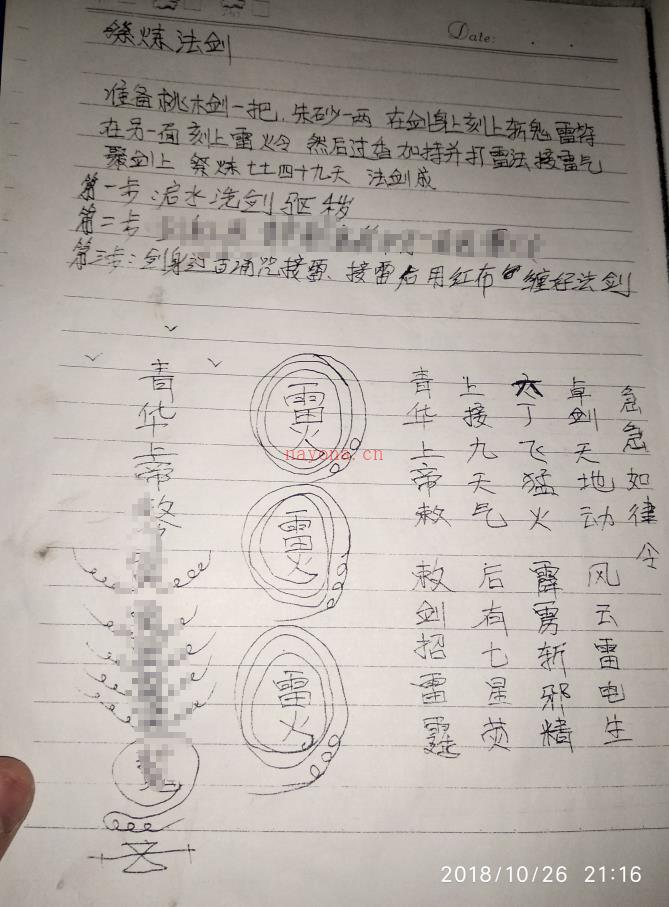 Date:
祭炼法剑
准备桃木剑一把,朱砂一两 在剑身上刻上斩鬼雷符
在另一面刻上雷火令 然后过香加持并打雷法接雷气
聚剑上 祭炼七七四十九天 法剑成
第一步:洗剑驱秽
第二步
第三步:剑身过百诵咒接雷、接雷后用红布缠好法剑
青华上帝
雷火
雷火
雷火
青华上帝敕 敕剑招雷霆
上接九天气 后有七星荧
六丁飞猛火 霹雳斩邪精
卓剑天地动 风云雷电生
急急如律令
nayona.cn
2018/10/26 21:16